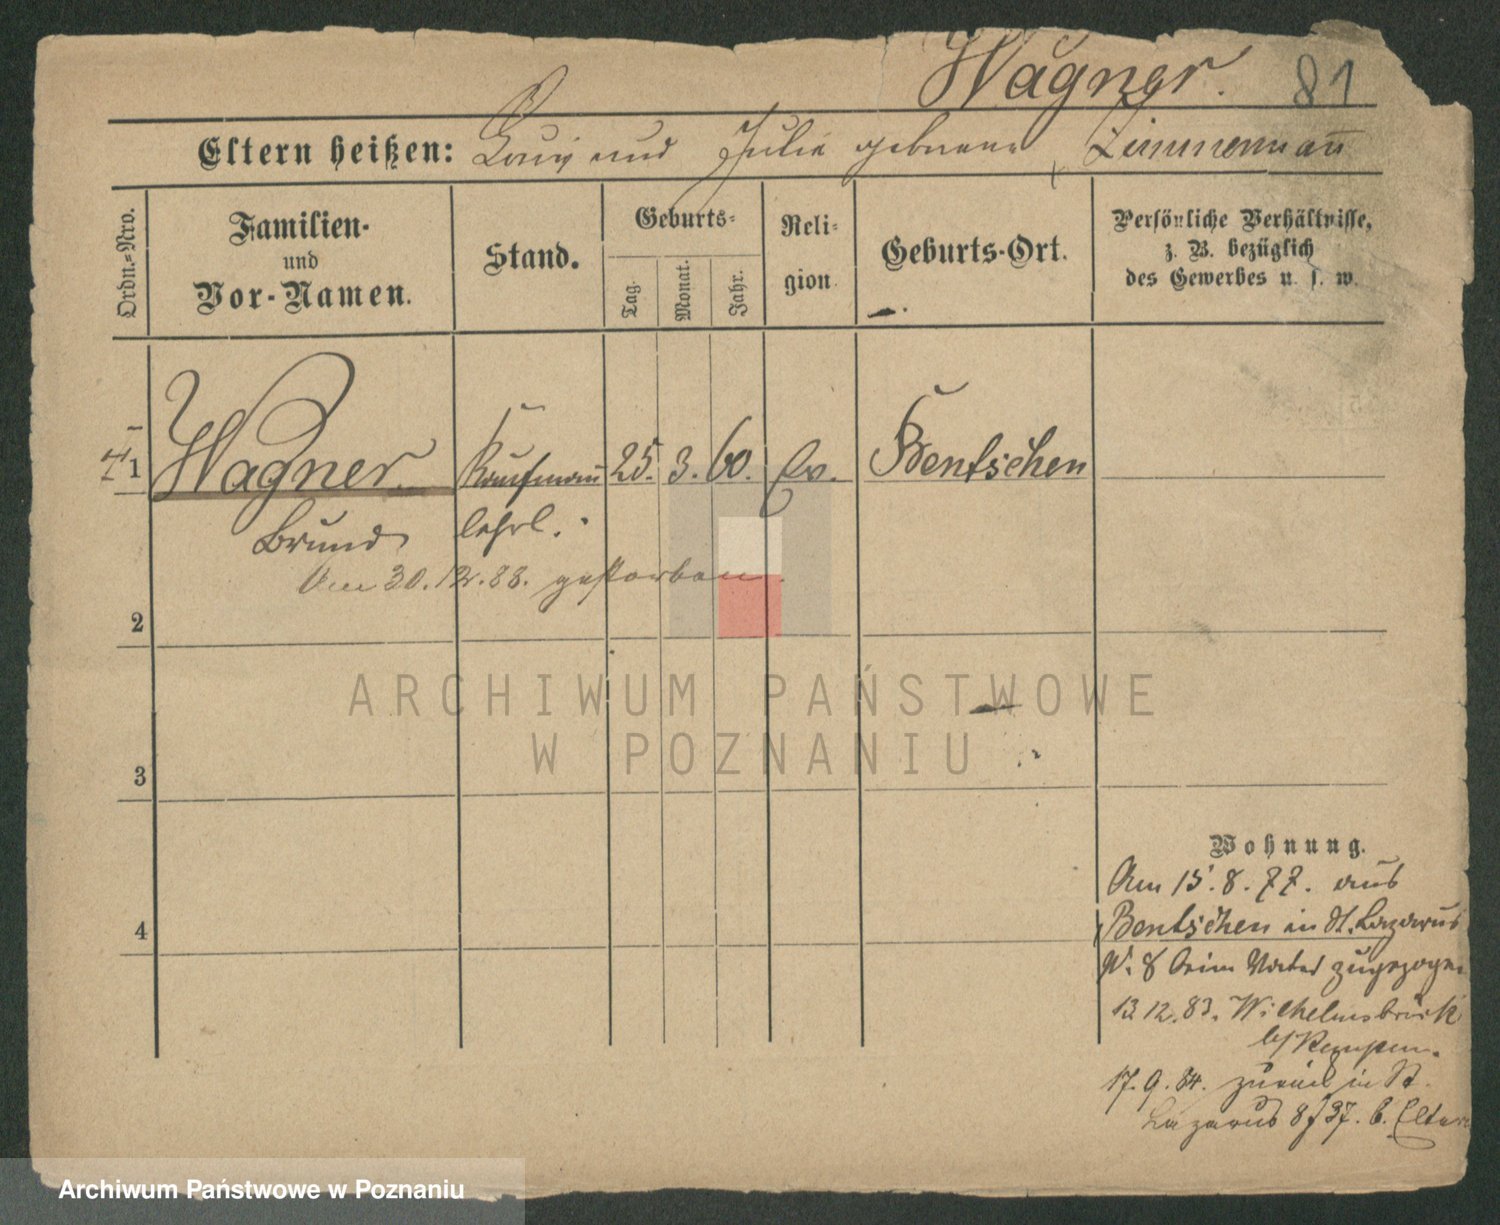 Wagner. 81
Eltern heißen: Louis und Julie geborene Zimmermañ
Ordn.-Nro.
Familien-
und
Vor-Namen.
Stand.
Geburts-
Tag.
Monat.
Jahr.
Reli-
gion
Geburts-Ort.
Persönliche Verhältnisse,
z. B. bezüglich
des Gewerbes u. s. w.
† 1 Wagner. Kaufmañ 25. 3. 60. Ev. Bentschen
Bruno lehrl.
Am 30.12.88. gestorben.
2
ARCHIWUM PAŃSTWOWE
W POZNANIU
3
4
Wohnung.
Am 15.8.77. aus
Bentschen in St. Lazarus
N. 8 beim Vater zugezogen
13.12.83. Wilhelmsbrück
b/ Kempen.
17.9.84. zurück in St.
Lazarus 8/37. b. Eltern
Archiwum Państwowe w Poznaniu